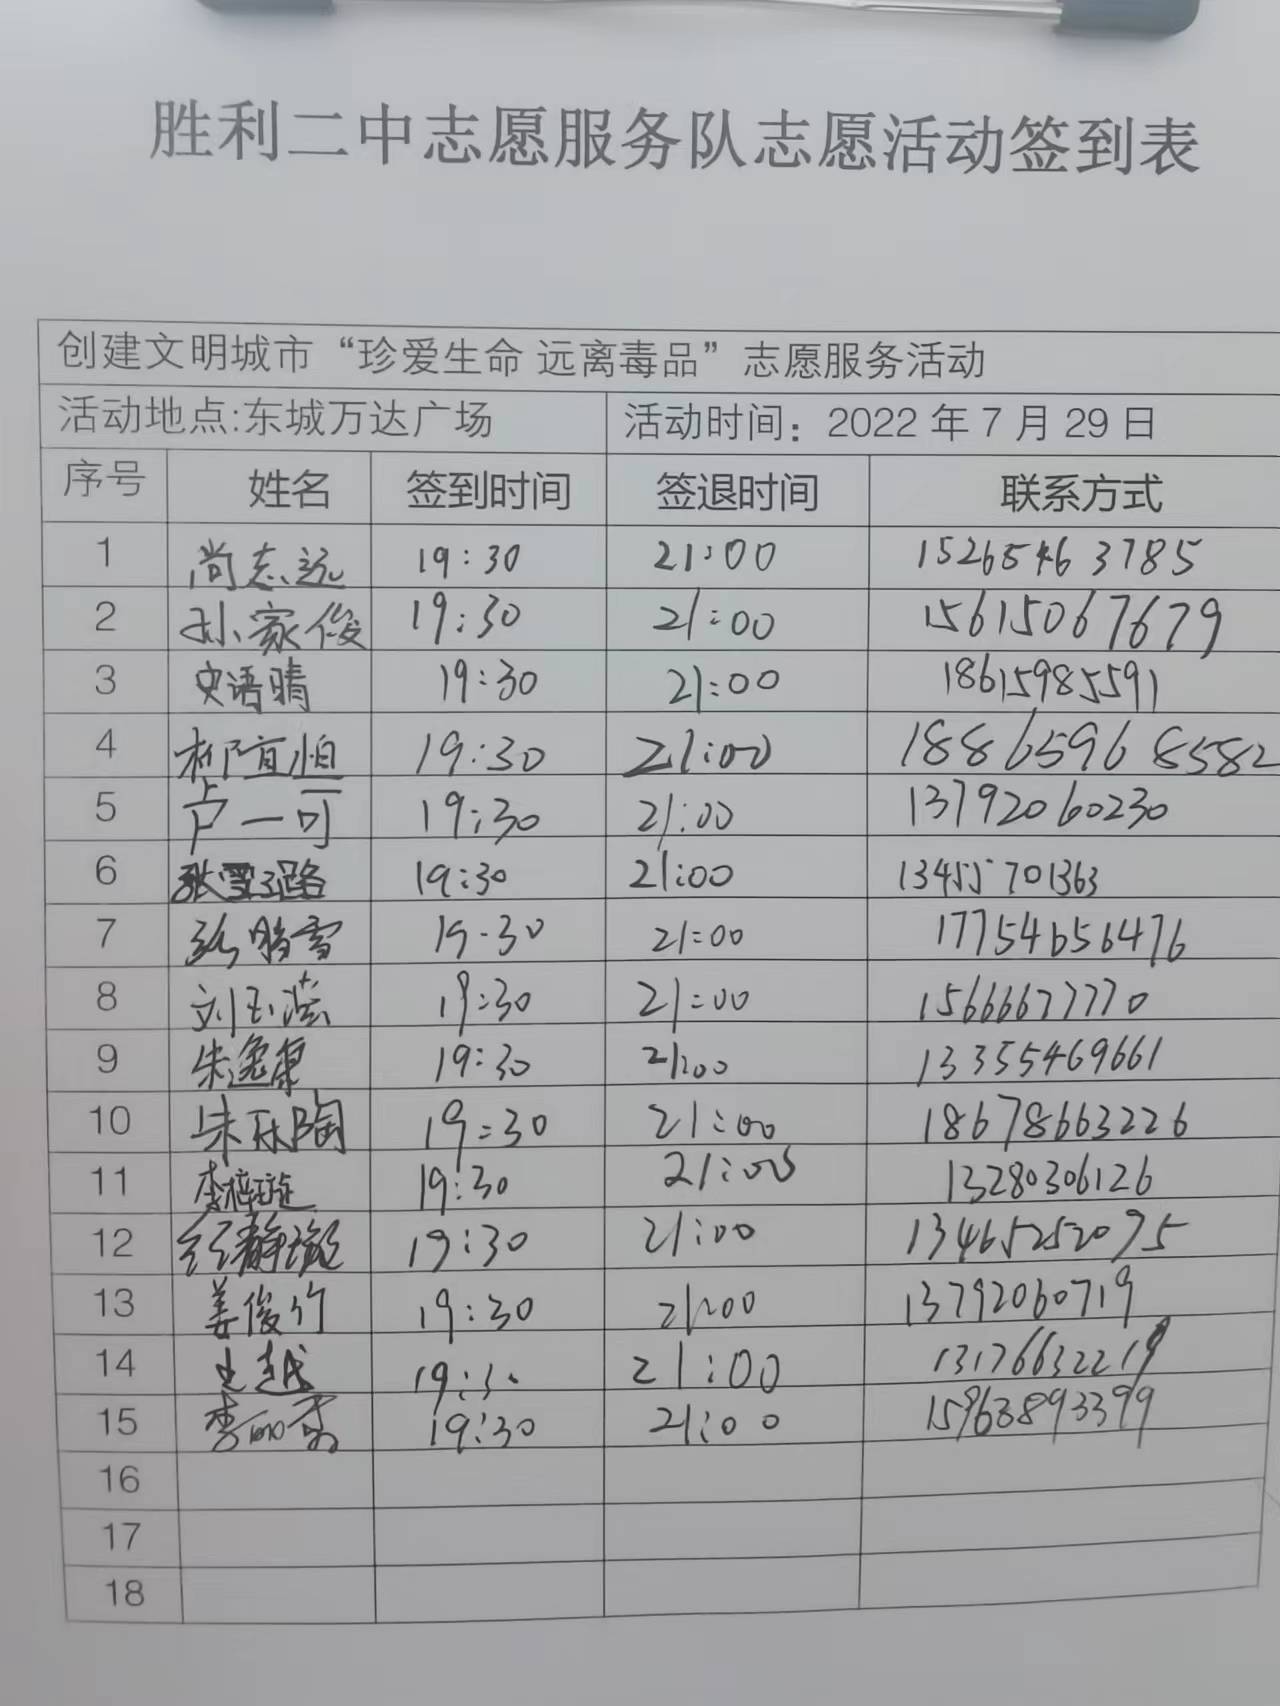 胜利二中志愿服务队志愿活动签到表
创建文明城市“珍爱生命 远离毒品”志愿服务活动
活动地点:东城万达广场 活动时间：2022年7月29日
序号 姓名 签到时间 签退时间 联系方式
1 尚志远 19:30 21:00 15265463785
2 孙家俊 19:30 21:00 15615067679
3 史语晴 19:30 21:00 18615985591
4 19:30 21:00 18865968582
5 卢一可 19:30 21:00 13792060230
6 19:30 21:00 13455701363
7 19:30 21:00 17754656476
8 刘玉 19:30 21:00 15666677770
9 朱逸康 19:30 21:00 13355469661
10 朱 陶 19:30 21:00 18678663226
11 李梓璇 19:30 21:00 13280306126
12 19:30 21:00 13465252075
13 姜俊竹 19:30 21:00 13792060719
14 王越 19:30 21:00 13176632219
15 李 19:30 21:00 15963893399
16
17
18